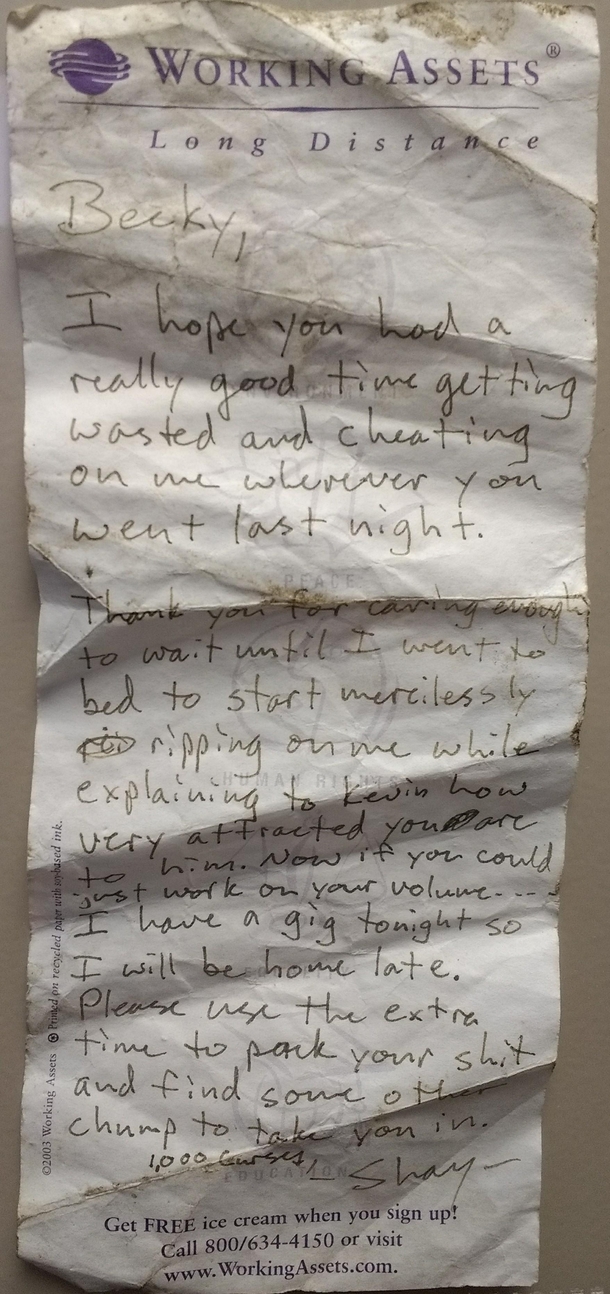 WORKING ASSETS®
Long Distance
Becky,
I hope you had a
really good time getting
wasted and cheating
on me wherever you
went last night.
PEACE
Thank you for caring enough
to wait until I went to
bed to start mercilessly
ripping on me while
HUMAN RIGHTS
explaining to Kevin how
very attracted you are
to him. Now if you could
just work on your volume----
I have a gig tonight so
I will be home late.
Please use the extra
time to pack your shit
and find some other
chump to take you in.
1,000 Curses,
- Shay-
EDUCATION
Get FREE ice cream when you sign up!
Call 800/634-4150 or visit
www.WorkingAssets.com.
©2003 Working Assets Printed on recycled paper with soy-based ink.